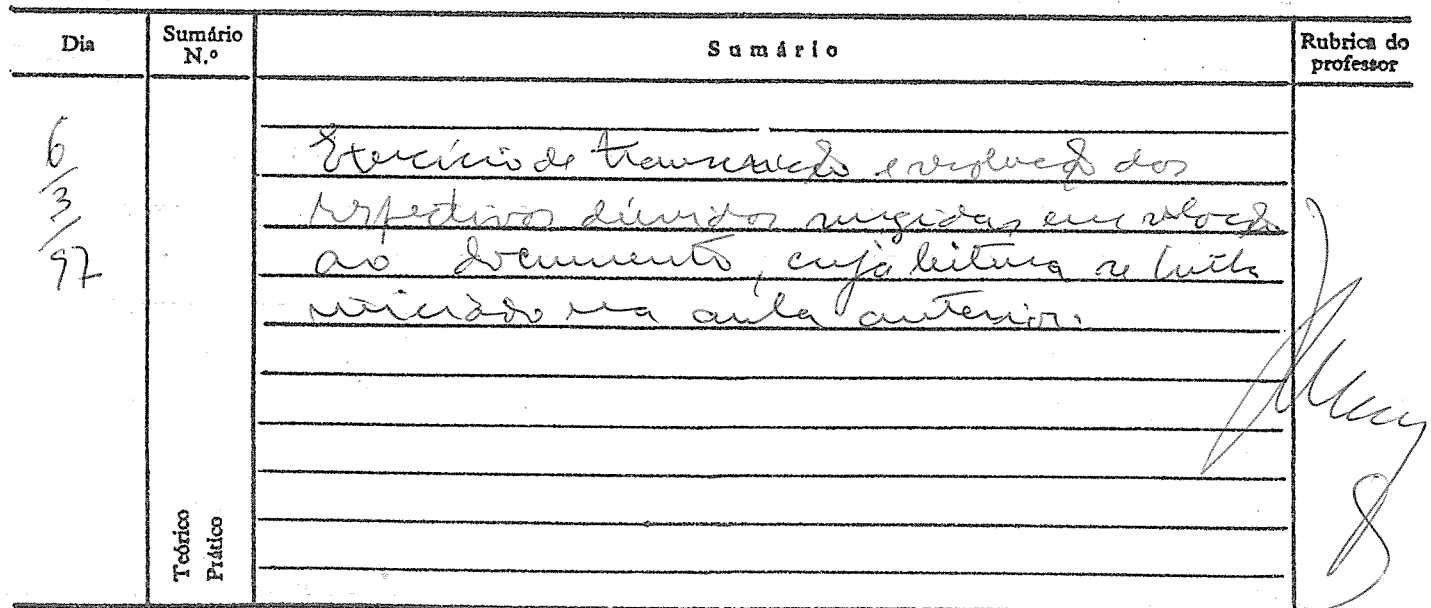 Dia
Sumário N.º
Sumário
Rubrica do professor
6/3/97
Exercício de transcrição e resolução dos
respectivos dúvidas surgidas em relação
ao documento, cuja leitura se tinha
iniciado na aula anterior.
Teórico
Prático